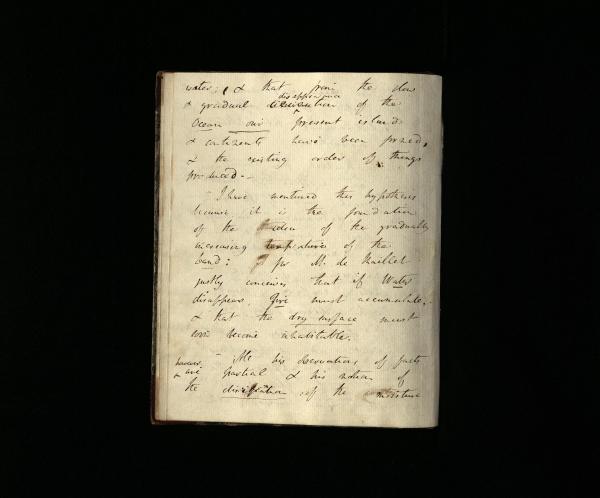 water; & that from the slow
disappearance
& gradual of the
Ocean our present islands
& continents have been formed,
& the existing order of things
produced. -
- I have mentioned this hypothesis
because it is the foundation
of the idea of the gradually
increasing temperature of the
Land: for M. de Maillet
justly conceives that if Water
disappears Fire must accumulate,
& that the dry surface must
soon become inhabitable.
- All his observations of facts
however
are partial & his notion of
the dissipation of the moisture